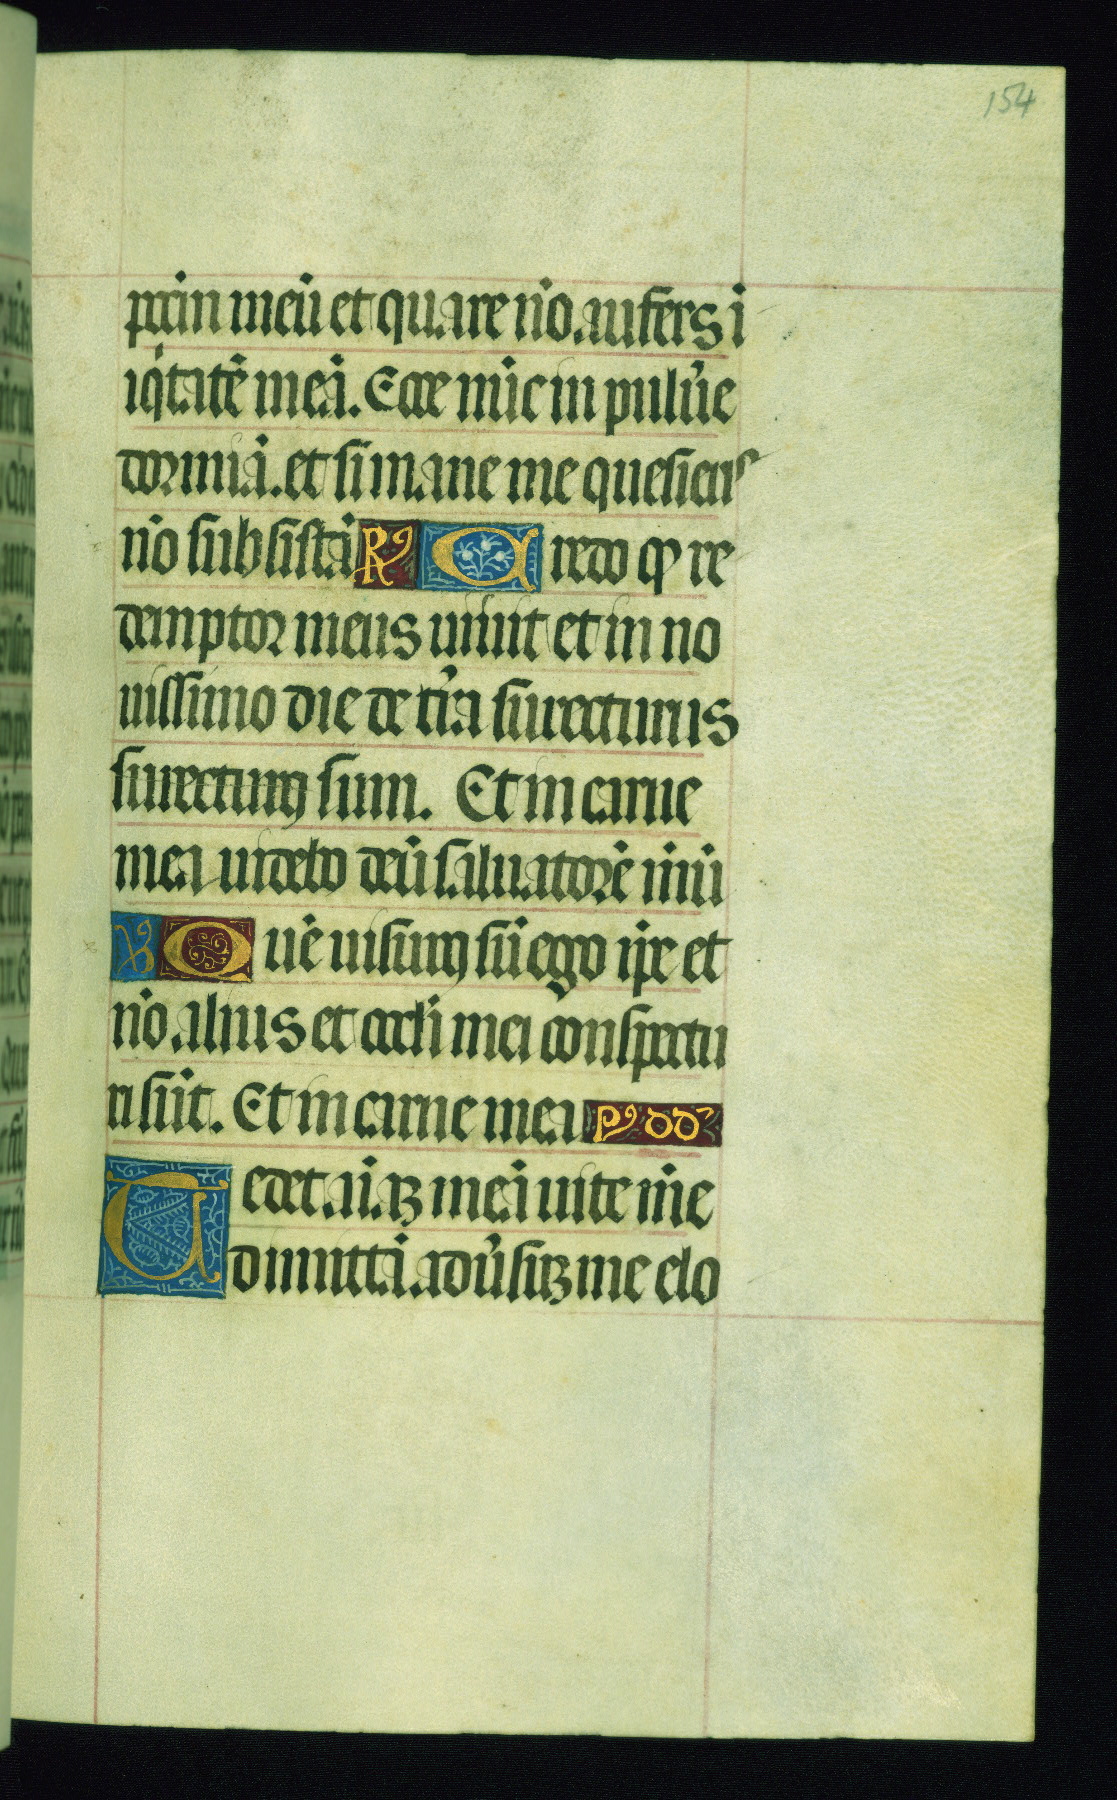 154
pctm̄ meū et quare nō aufers i
iq̇tatē meā. Ecce nūc in puluͥe
dormiā. et si mane me quesieris
nō subsistā R̷ Credo qͥ re
demptor meus uiuit et in no
uissimo die de tr̄a surecturus
surecturꝰ sum. Et in carne
mea uidebo deū saluatorē mūͥ
V̷ Quē uisurꝰ sū ego ip̄e et
nō alius et oculi mei conspectu
ri sūt. Et in carne mea pꝰ dd̄
Tedet aīaꝫ meā uite mē
dimittā aduͥsuꝫ me elo